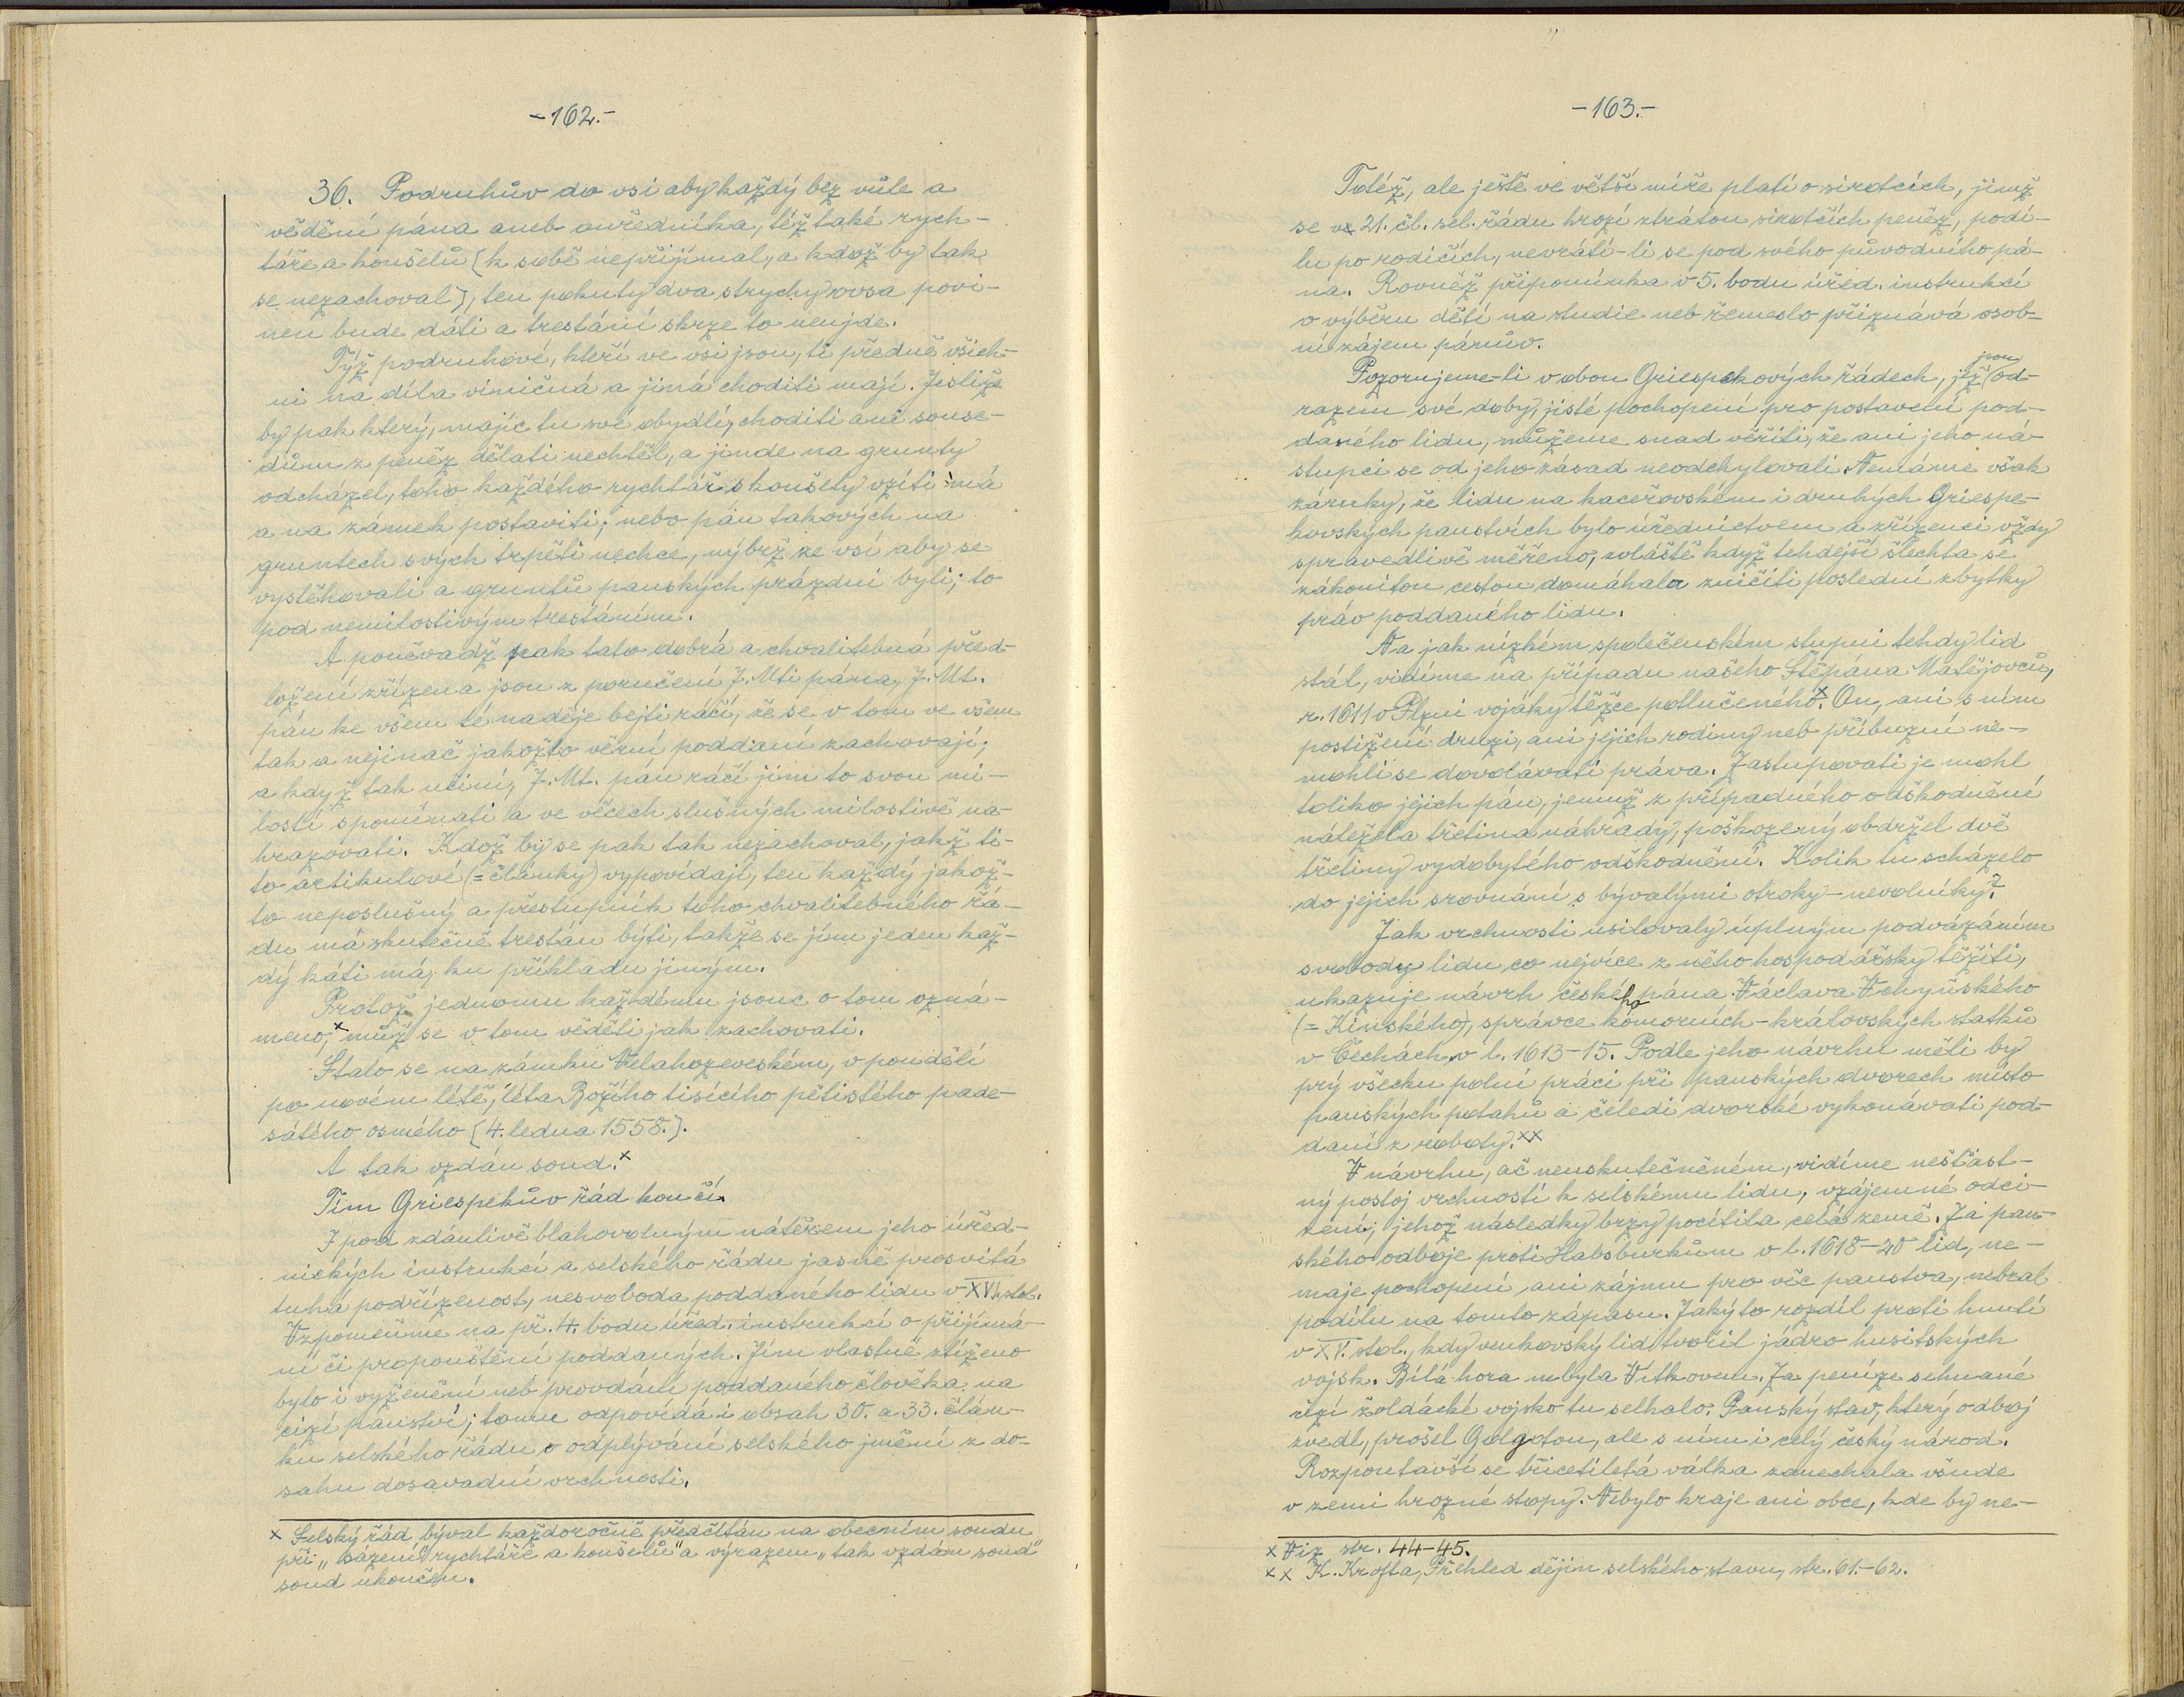 -162.-
36. Podruhův do vsi aby každý bez vůle a
vědění pána aneb ouředníka, též také rych-
táře a konšelů [k sobě nepřijímal, a kdož by tak
se nezachoval], ten pokuty dva strychy ovsa povi-
nen bude dáti a trestání skrze to neujde.
Týž podruhové, kteří ve vsi jsou, ti předně všich-
ni na díla viničná a jiná choditi mají. Jestliže
by pak který, majíc tu své obydlí, choditi ani souse-
dům z peněz dělati nechtěl, a jinde na grunty
odcházel, toho každého rychtář s konšely vzíti má
a na zámek postaviti; nebo pán takových na
gruntech svých trpěti nechce, nýbrž ze vsi aby se
vystěhovali a gruntů panských prázdni byli; to
pod nemilostivým trestáním.
A poněvadž pak tato dobrá a chvalitebná před-
ložení zřízena jsou z poručení J. Mti pána, J. Mt.
pán ke všem té naděje bejti ráčí, že se v tom ve všem
tak a nejinač jakožto věrní poddaní zachovají;
a když tak učiní, J. Mt. pán ráčí jim to svou mi-
lostí spomínati a ve věcech slušných milostivě na-
hrazovati. Kdož by se pak tak nezachoval, jakž ti-
to artikulové (= články) vypovídají, ten každý jakož-
to neposlušný a přestupník toho chvalitebného řá-
du má skutečně trestán býti, takže se jím jeden kaž-
dý káti má, ku příkladu jiným.
Protož jednomu každému jsouc o tom ozná-
meno,x můž se v tom věděti jak zachovati.
Stalo se na zámku Velahozeveském, v pondělí
po novém létě, léta Božího tisícího pětistého pade-
sátého osmého [4. ledna 1558.].
A tak vzdán soud.x
Tím Griespekův řád končí.
I pod zdánlivě blahovolným nátěrem jeho úřed-
nických instrukcí a selského řádu jasně prosvítá
tuhá podřízenost, nesvoboda poddaného lidu v XVI. stol.
Vzpomeňme na př. 4. bodu úřed. instrukcí o přijímá-
ní či propouštění poddaných. Jím vlastně ztíženo
bylo i vyženění neb provdání poddaného člověka na
cizí panství; tomu odpovídá i obsah 30. a 33. člán-
ku selského řádu o odplývání selského jmění z do-
sahu dosavadní vrchnosti.
x Selský řád býval každoročně předčítán na obecním soudu
při „sázení" rychtáře a konšelů" a výrazem „tak vzdán soud"
soud ukončen.
-163.-
Totéž, ale ještě ve větší míře platí o sirotcích, jimž
se ve 21. čl. sel. řádu hrozí ztrátou sirotčích peněz, podí-
lu po rodičích, nevrátí-li se pod svého původního pá-
na. Rovněž připomínka v 5. bodu úřed. instrukcí
o výběru dětí na studie neb řemeslo přiznává osob-
ní zájem pánův.
Pozorujeme-li v obou Griespekových řádech, jež jsou od-
razem své doby, jisté pochopení pro postavení pod-
daného lidu, můžeme snad věřiti, že ani jeho ná-
stupci se od jeho zásad neodchylovali. Nemáme však
záruky, že lidu na kaceřovském i druhých Griespe-
kovských panstvích bylo úřednictvem a zřízenci vždy
spravedlivě měřeno, zvláště když tehdejší šlechta se
zákonitou cestou domáhala zničiti poslední zbytky
práv poddaného lidu.
Na jak nízkém společenském stupni tehdy lid
stál, vidíme na případu našeho Štěpána Matějovců,
r. 1611 v Plzni vojáky těžce potlučeného.x On, ani s ním
postižení druzi, ani jejich rodiny neb příbuzní ne-
mohli se dovolávati práva. Zastupovati je mohl
toliko jejich pán, jemuž z případného odškodnění
náležela třetina náhrady, poškozený obdržel dvě
třetiny vydobytého odškodnění. Kolik tu scházelo
do jejich srovnání s bývalými otroky-nevolníky?
Jak vrchnosti usilovaly úplným podvázáním
svobody lidu co nejvíce z něho hospodářsky těžiti,
ukazuje návrh českého pána Václava Vchynského
(= Kinského), správce komorních-královských statků
v Čechách v l. 1613-15. Podle jeho návrhu měli by
prý všecku polní práci při panských dvorech místo
panských potahů a čeledi dvorské vykonávati pod-
daní z roboty.xx
V návrhu, ač neuskutečněném, vidíme nešťast-
ný postoj vrchností k selskému lidu, vzájemné odci-
zení, jehož následky brzy pocítila celá země. Za pan-
ského odboje proti Habsburkům v l. 1618-20 lid, ne-
maje pochopení ani zájmu pro věc panstva, nebral
podílu na tomto zápasu. Jaký to rozdíl proti hnutí
v XV. stol., kdy venkovský lid tvořil jádro husitských
vojsk. Bílá hora nebyla Vítkovem. Za peníze sehnané
cizí žoldácké vojsko tu selhalo. Panský stav, který odboj
zvedl, prošel Golgotou, ale s ním i celý český národ.
Rozpoutavší se třicetiletá válka zanechala všude
v zemi hrozné stopy. Nebylo kraje ani obce, kde by ne-
x Viz str. 44-45.
xx K. Krofta, Přehled dějin selského stavu, str. 61.-62.